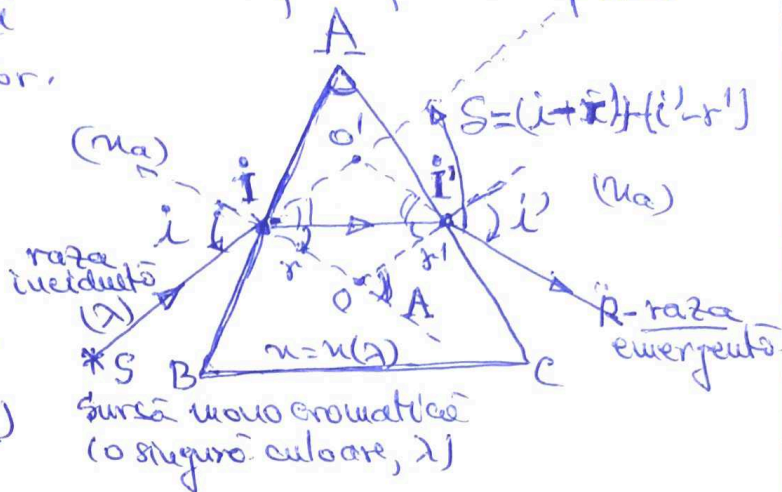 or.
A
δ=(i+r)+(i'-r')
(na)
O'
I
I'
(na)
i
i'
raza
incidentă
(λ)
r
r'
O
A
R-raza
emergentă
*S
B
n=n(λ)
C
Sursă monocromatică
(o singură culoare, λ)